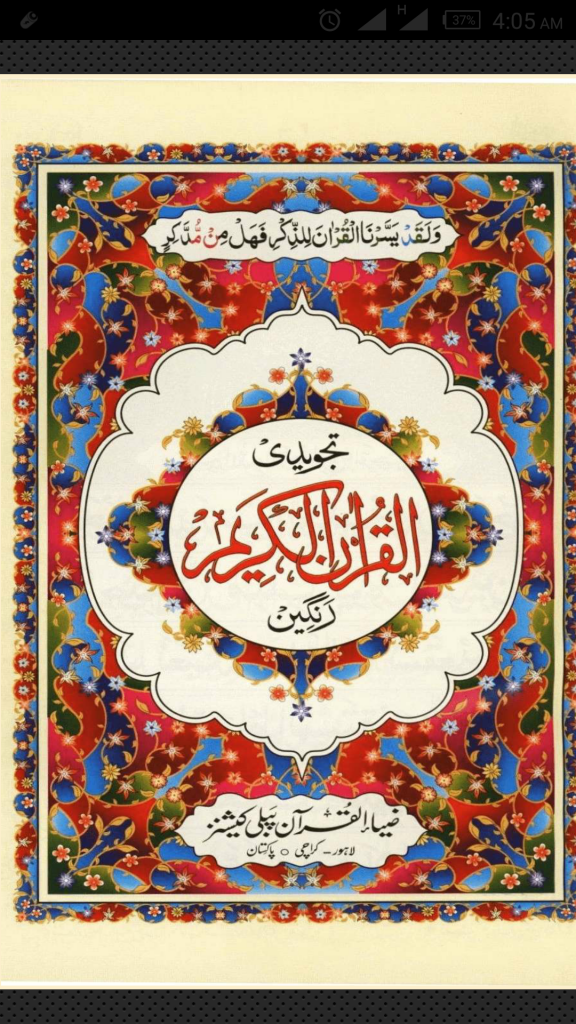 H
37%
4:05 AM
وَلَقَدْ يَسَّرْنَا الْقُرْاٰنَ لِلذِّكْرِ فَهَلْ مِنْ مُّدَّكِرٍ
تجویدی
القُرْاٰنُ الكَرِيم
رَنگین
ضیاءُ القُرآن پَبلی کیشنز
لاہور - کراچی ○ پاکستان